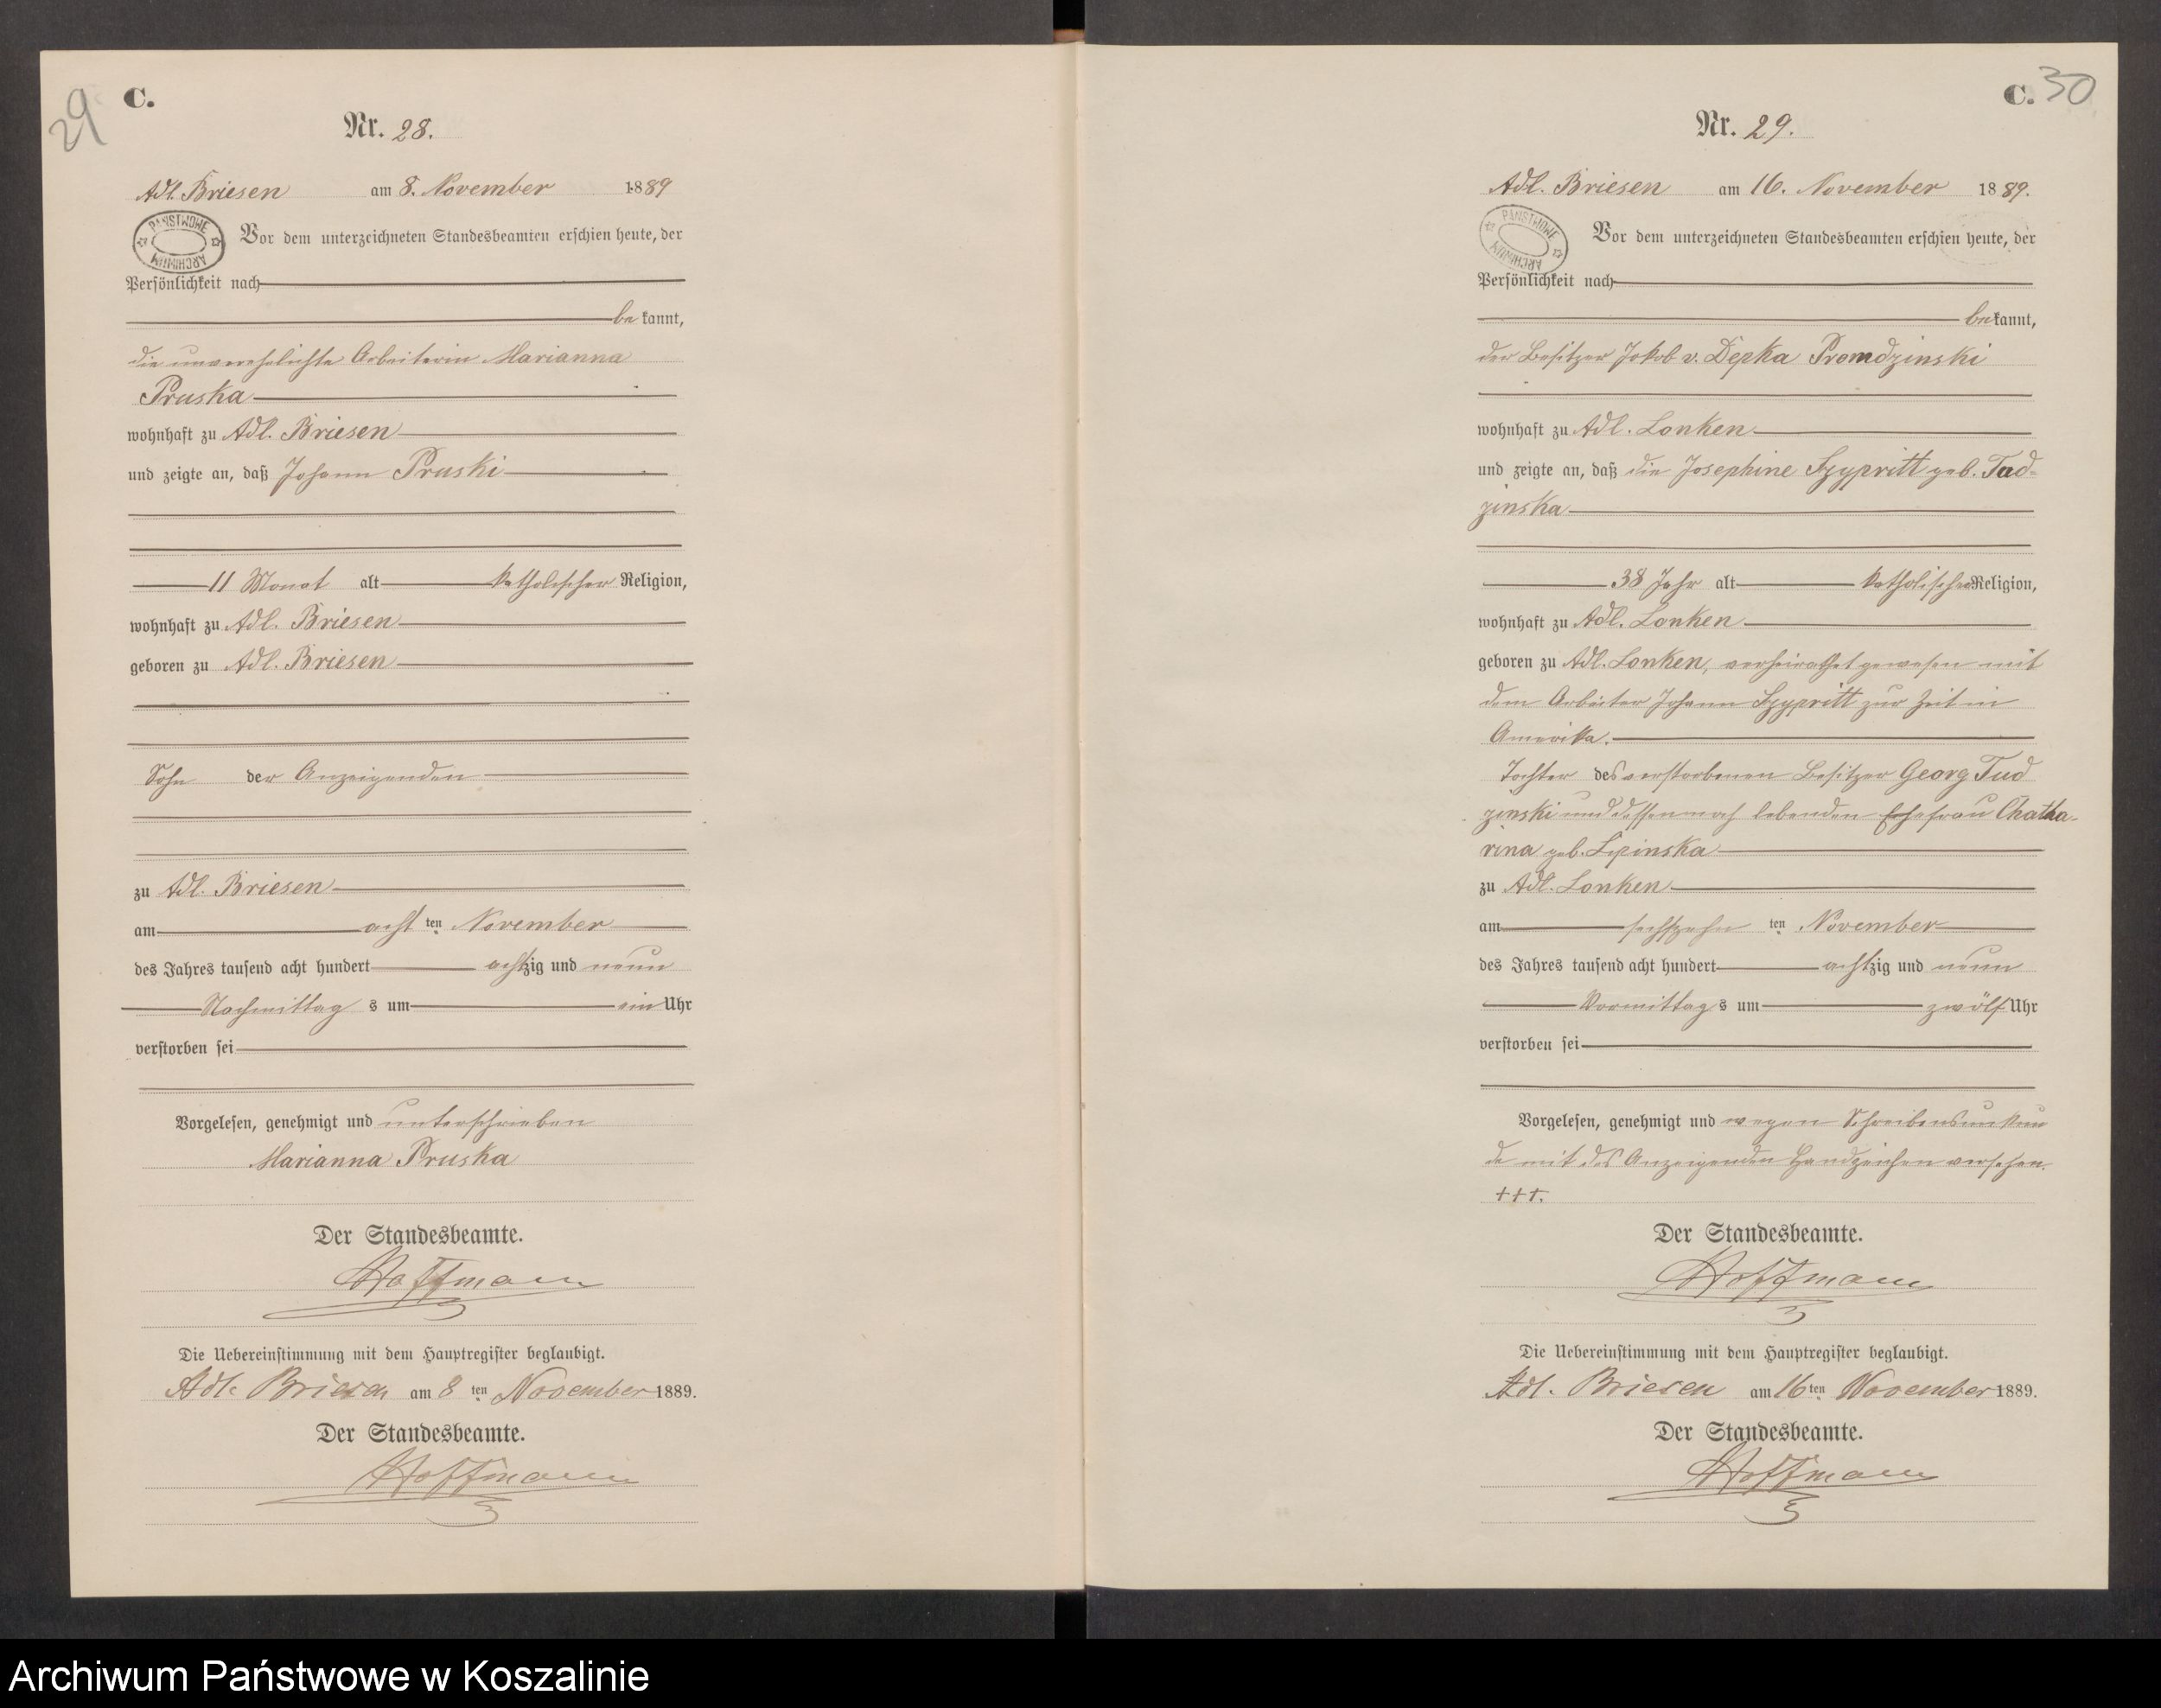 29
C.
Nr. 28.
Adl. Briesen am 8. November 1889
PAŃSTWOWE ARCHIWUM
Vor dem unterzeichneten Standesbeamten erschien heute, der
Persönlichkeit nach
be kannt,
die unverehelichte Arbeiterin Marianna
Pruska
wohnhaft zu Adl. Briesen
und zeigte an, daß Johann Pruski
11 Monat alt katholischer Religion,
wohnhaft zu Adl. Briesen
geboren zu Adl. Briesen
Sohn der Anzeigenden
zu Adl. Briesen
am acht ten November
des Jahres tausend acht hundert achtzig und neun
Nachmittag s um ein Uhr
verstorben sei
Vorgelesen, genehmigt und unterschrieben
Marianna Pruska
Der Standesbeamte.
Hoffmann
Die Uebereinstimmung mit dem Hauptregister beglaubigt.
Adl. Briesen am 8 ten November 1889.
Der Standesbeamte.
Hoffmann
C. 30
Nr. 29.
Adl. Briesen am 16. November 1889.
PAŃSTWOWE ARCHIWUM
Vor dem unterzeichneten Standesbeamten erschien heute, der
Persönlichkeit nach
bekannt,
der Besitzer Jakob v. Depka Prondzinski
wohnhaft zu Adl. Lonken
und zeigte an, daß die Josephine Szypritt geb. Tud-
zinska
38 Jahr alt katholischer Religion,
wohnhaft zu Adl. Lonken
geboren zu Adl. Lonken, verheirathet gewesen mit
dem Arbeiter Johann Szypritt zur Zeit in
Amerika.
Tochter des verstorbenen Besitzer Georg Tud
zinski und dessen noch lebenden Ehefrau Chatha-
rina geb. Lipinska
zu Adl. Lonken
am sechszehn ten November
des Jahres tausend acht hundert achtzig und neun
Vormittag s um zwölf Uhr
verstorben sei
Vorgelesen, genehmigt und wegen Schreibensunkun
de mit des Anzeigenden Handzeichen versehen.
+++.
Der Standesbeamte.
Hoffmann
Die Uebereinstimmung mit dem Hauptregister beglaubigt.
Adl. Briesen am 16 ten November 1889.
Der Standesbeamte.
Hoffmann
Archiwum Państwowe w Koszalinie